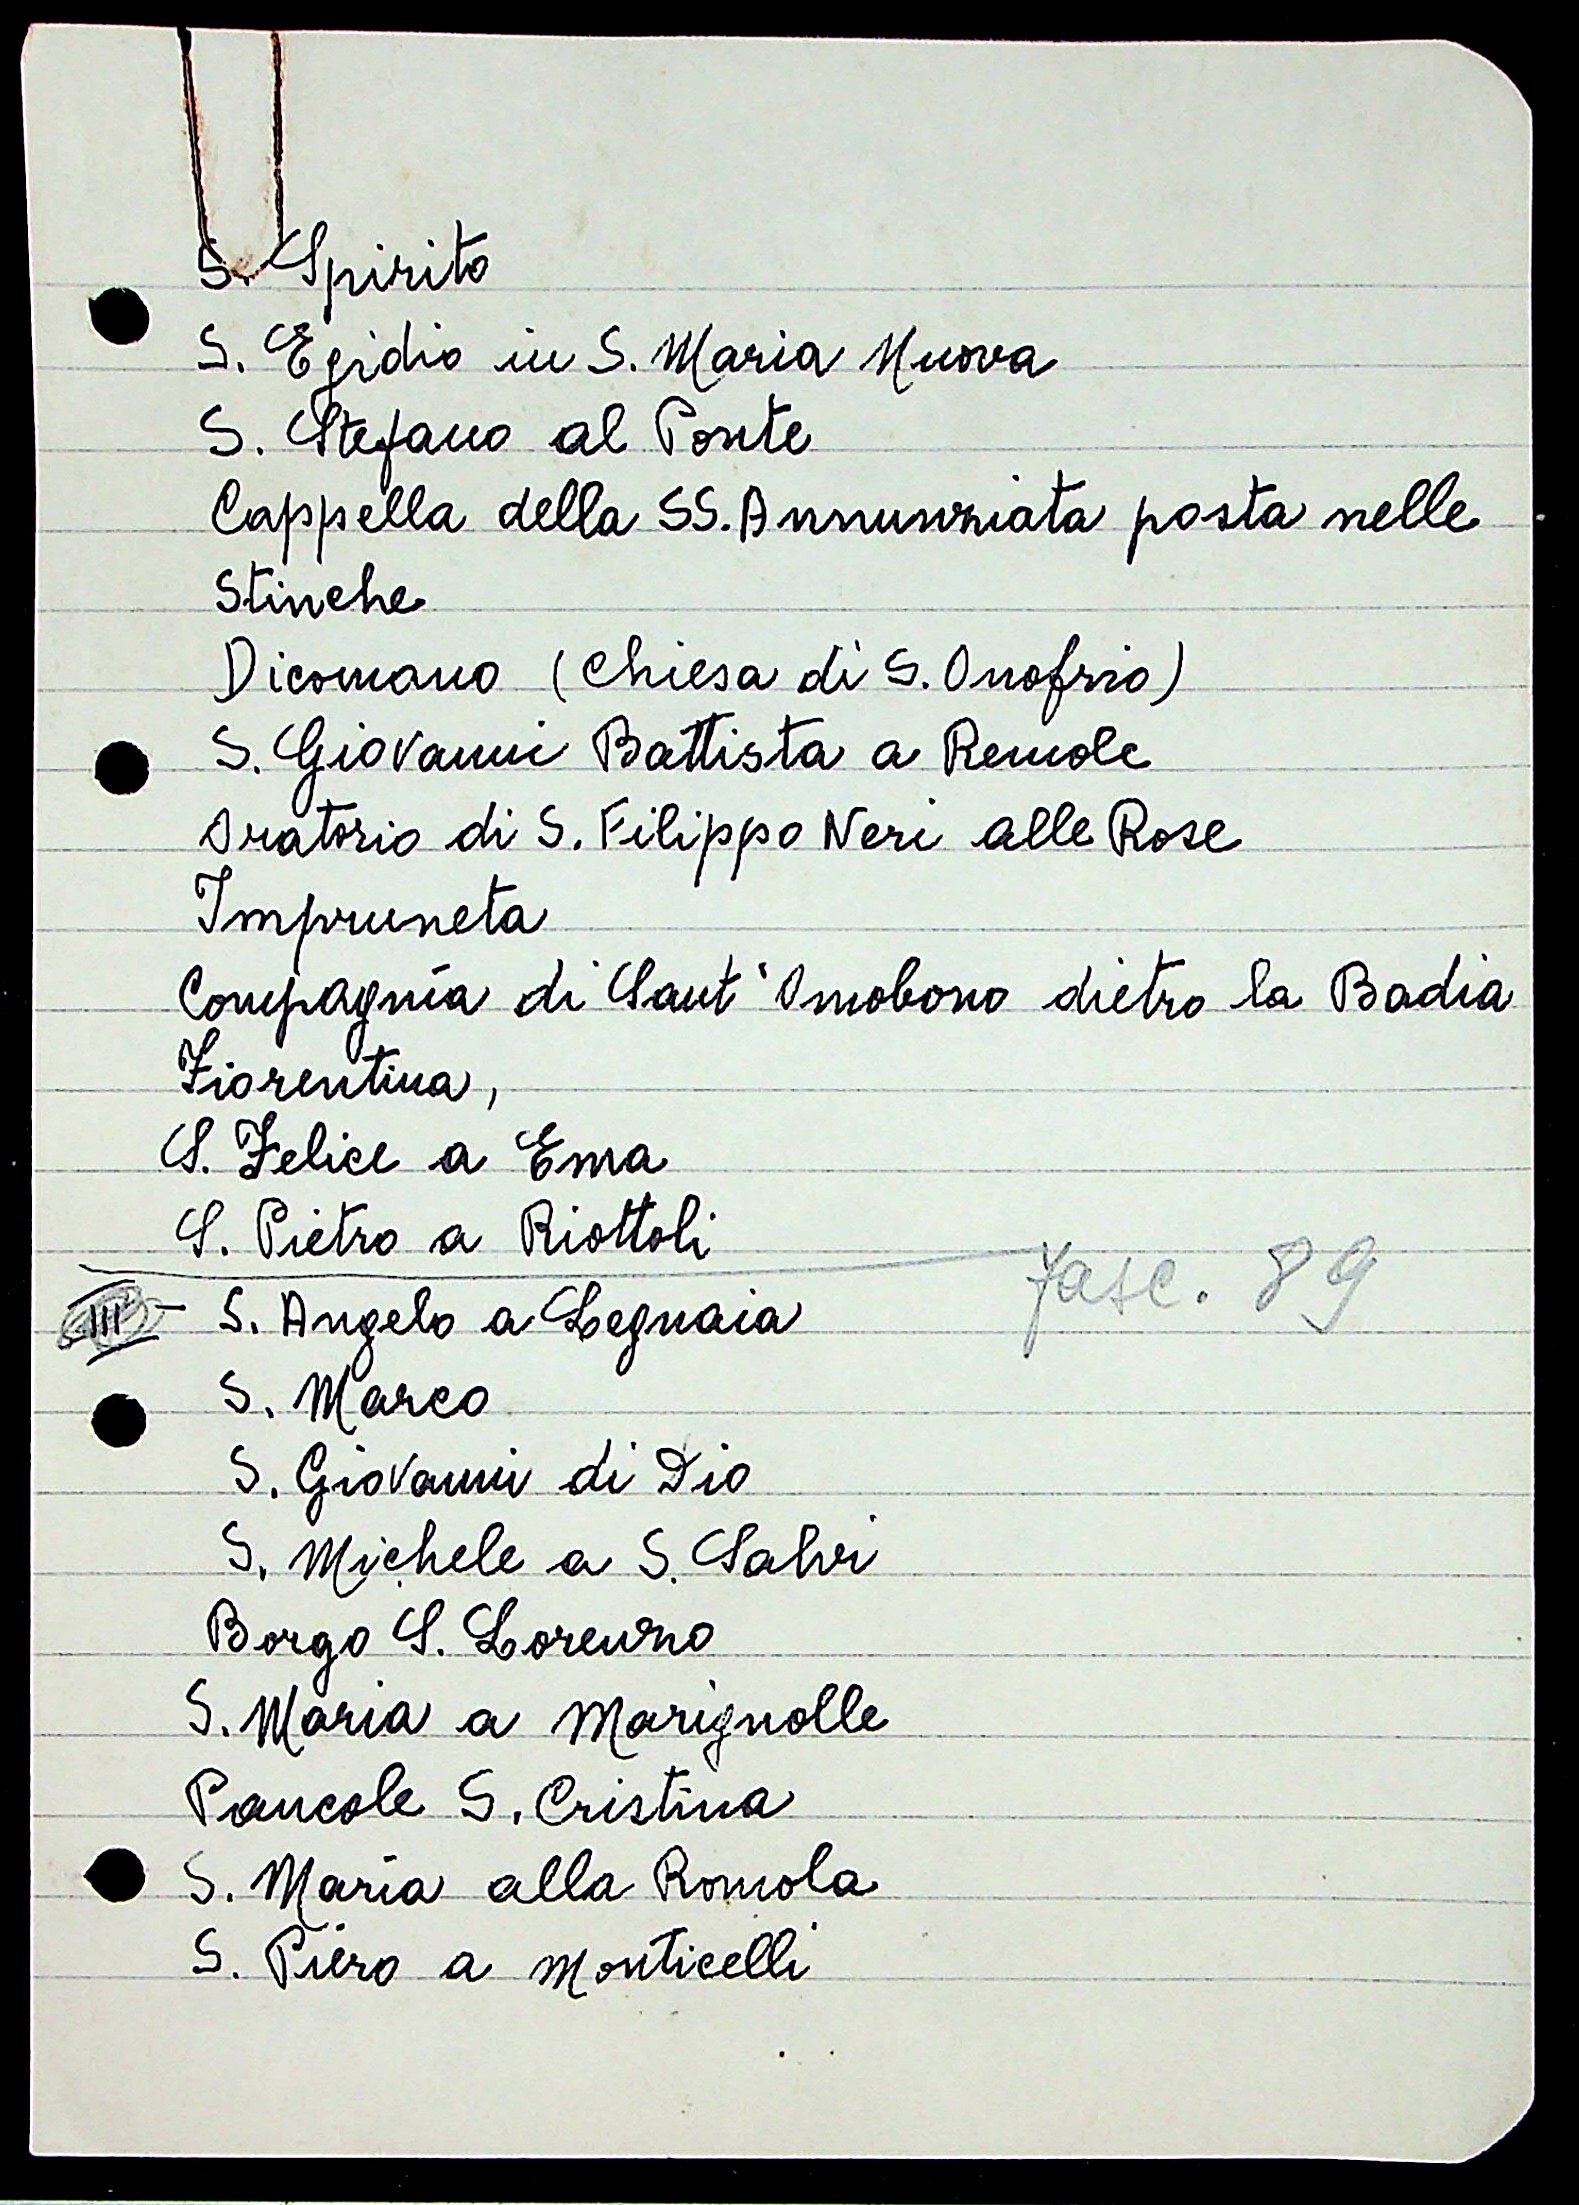 S. Spirito
S. Egidio in S. Maria Nuova
S. Stefano al Ponte
Cappella della SS. Annunziata posta nelle
Stinche
Dicomano (Chiesa di S. Onofrio)
S. Giovanni Battista a Remole
Oratorio di S. Filippo Neri alle Rose
Impruneta
Compagnia di Sant'Omobono dietro la Badia
Fiorentina,
S. Felice a Ema
S. Pietro a Riottoli
fasc. 89
III - S. Angelo a Legnaia
S. Marco
S. Giovanni di Dio
S. Michele a S. Salvi
Borgo S. Lorenzo
S. Maria a Marignolle
Pancole S. Cristina
S. Maria alla Romola
S. Piero a Monticelli